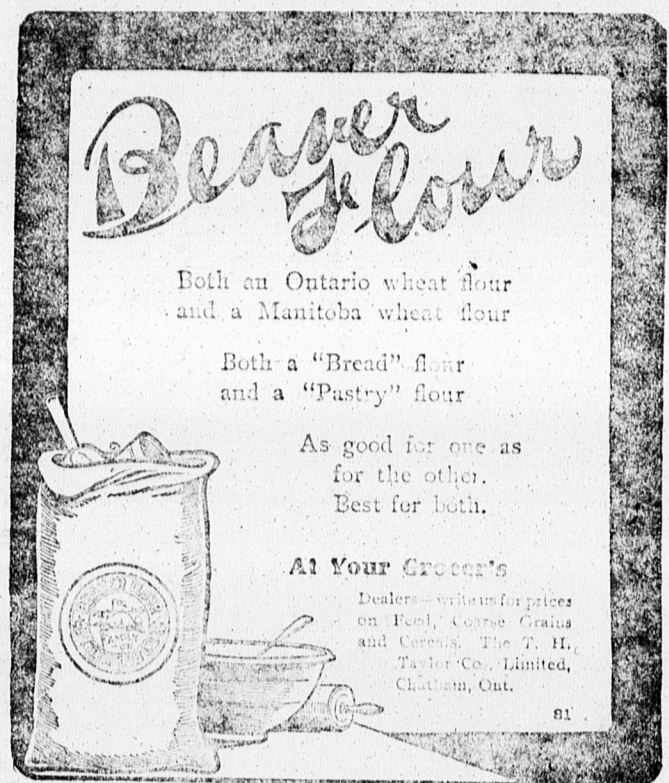 Beaver
Flour
Both an Ontario wheat flour
and a Manitoba wheat flour
Both a "Bread" flour
and a "Pastry" flour
As good for one as
for the other.
Best for both.
At Your Grocer's
Dealers—write us for prices
on Feed, Coarse Grains
and Cereals. The T. H.
Taylor Co., Limited,
Chatham, Ont.
81